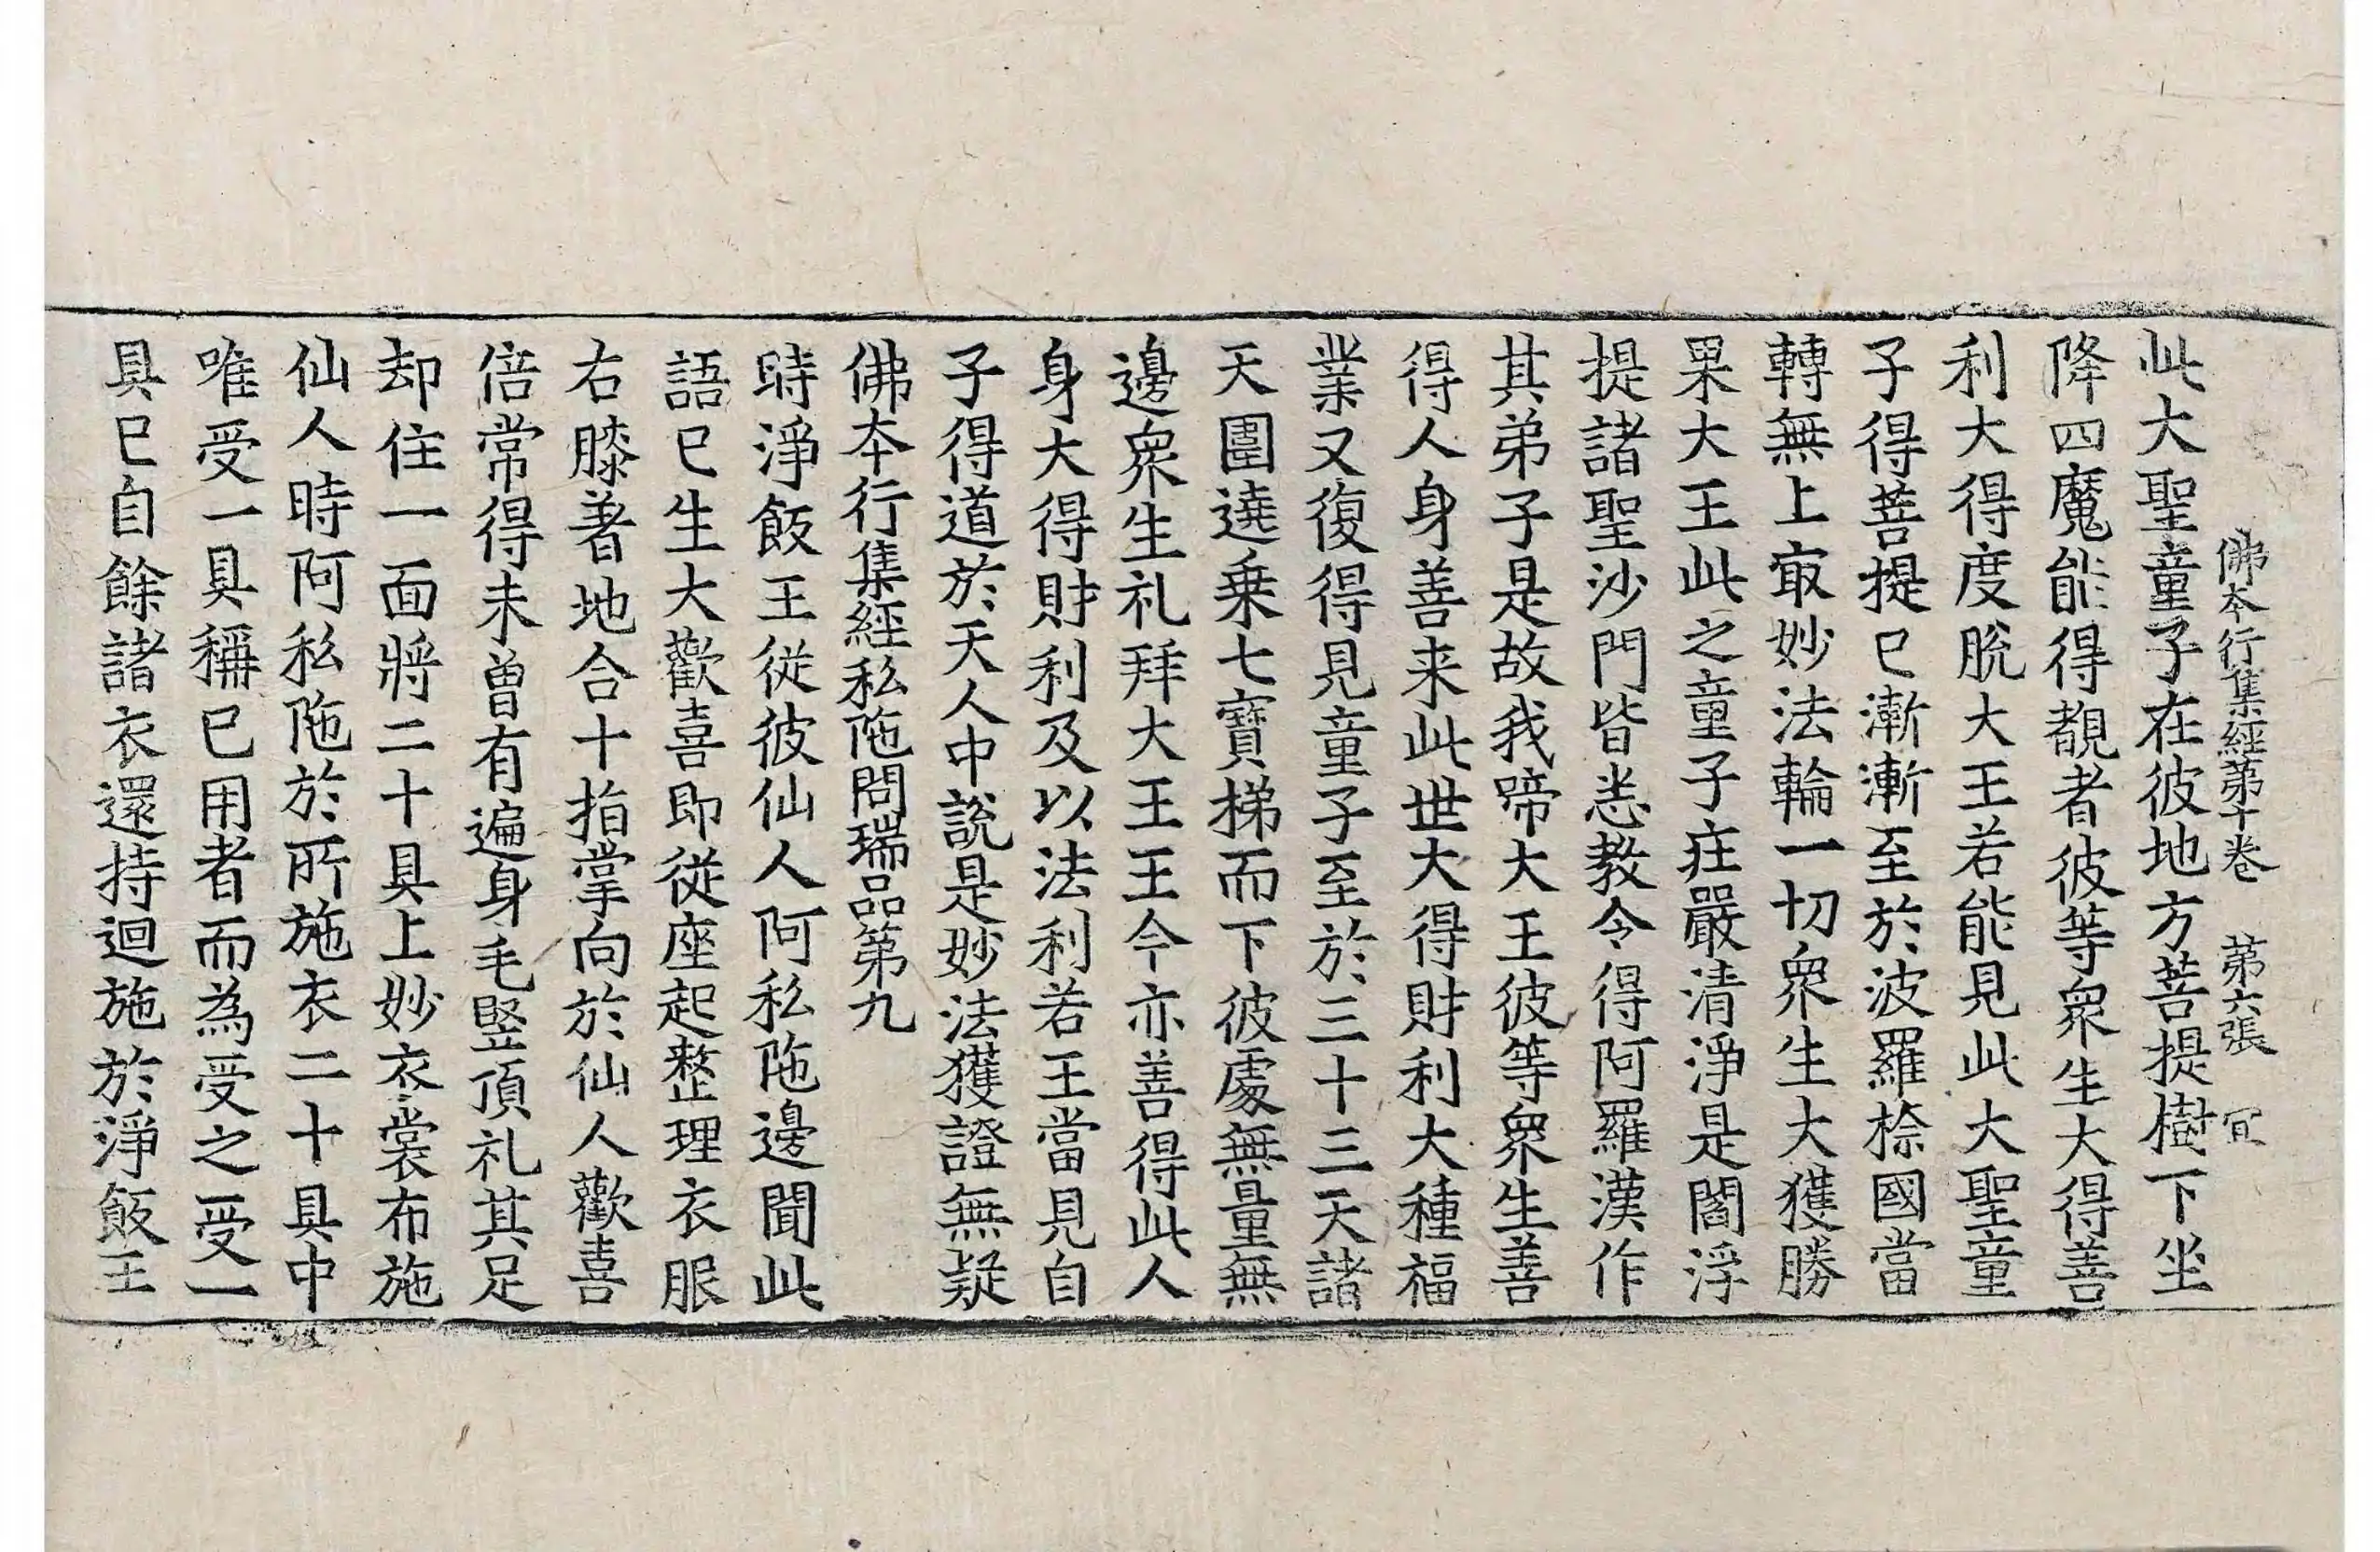 佛本行集經第十卷　第六張　宜
此大聖童子在彼地方菩提樹下坐
降四魔能得覩者彼等衆生大得善
利大得度脫大王若能見此大聖童
子得菩提已漸漸至於波羅㮈國當
轉無上㝡妙法輪一切衆生大獲勝
果大王此之童子庄嚴清淨是閻浮
提諸聖沙門皆悉教令得阿羅漢作
其弟子是故我啼大王彼等衆生善
得人身善来此世大得財利大種福
業又復得見童子至於三十三天諸
天圍遶乗七寶梯而下彼處無量無
邊衆生礼拜大王王今亦善得此人
身大得財利及以法利若王當見自
子得道於天人中說是妙法獲證無疑
佛本行集經私陁問瑞品第九
時淨飯王從彼仙人阿私陁邊聞此
語已生大歡喜即從座起整理衣服
右膝著地合十指掌向於仙人歡喜
倍常得未曾有遍身毛竪頂礼其足
却住一面將二十具上妙衣裳布施
仙人時阿私陁於所施衣二十具中
唯受一具稱已用者而為受之受一
具已自餘諸衣還持迴施於淨飯王